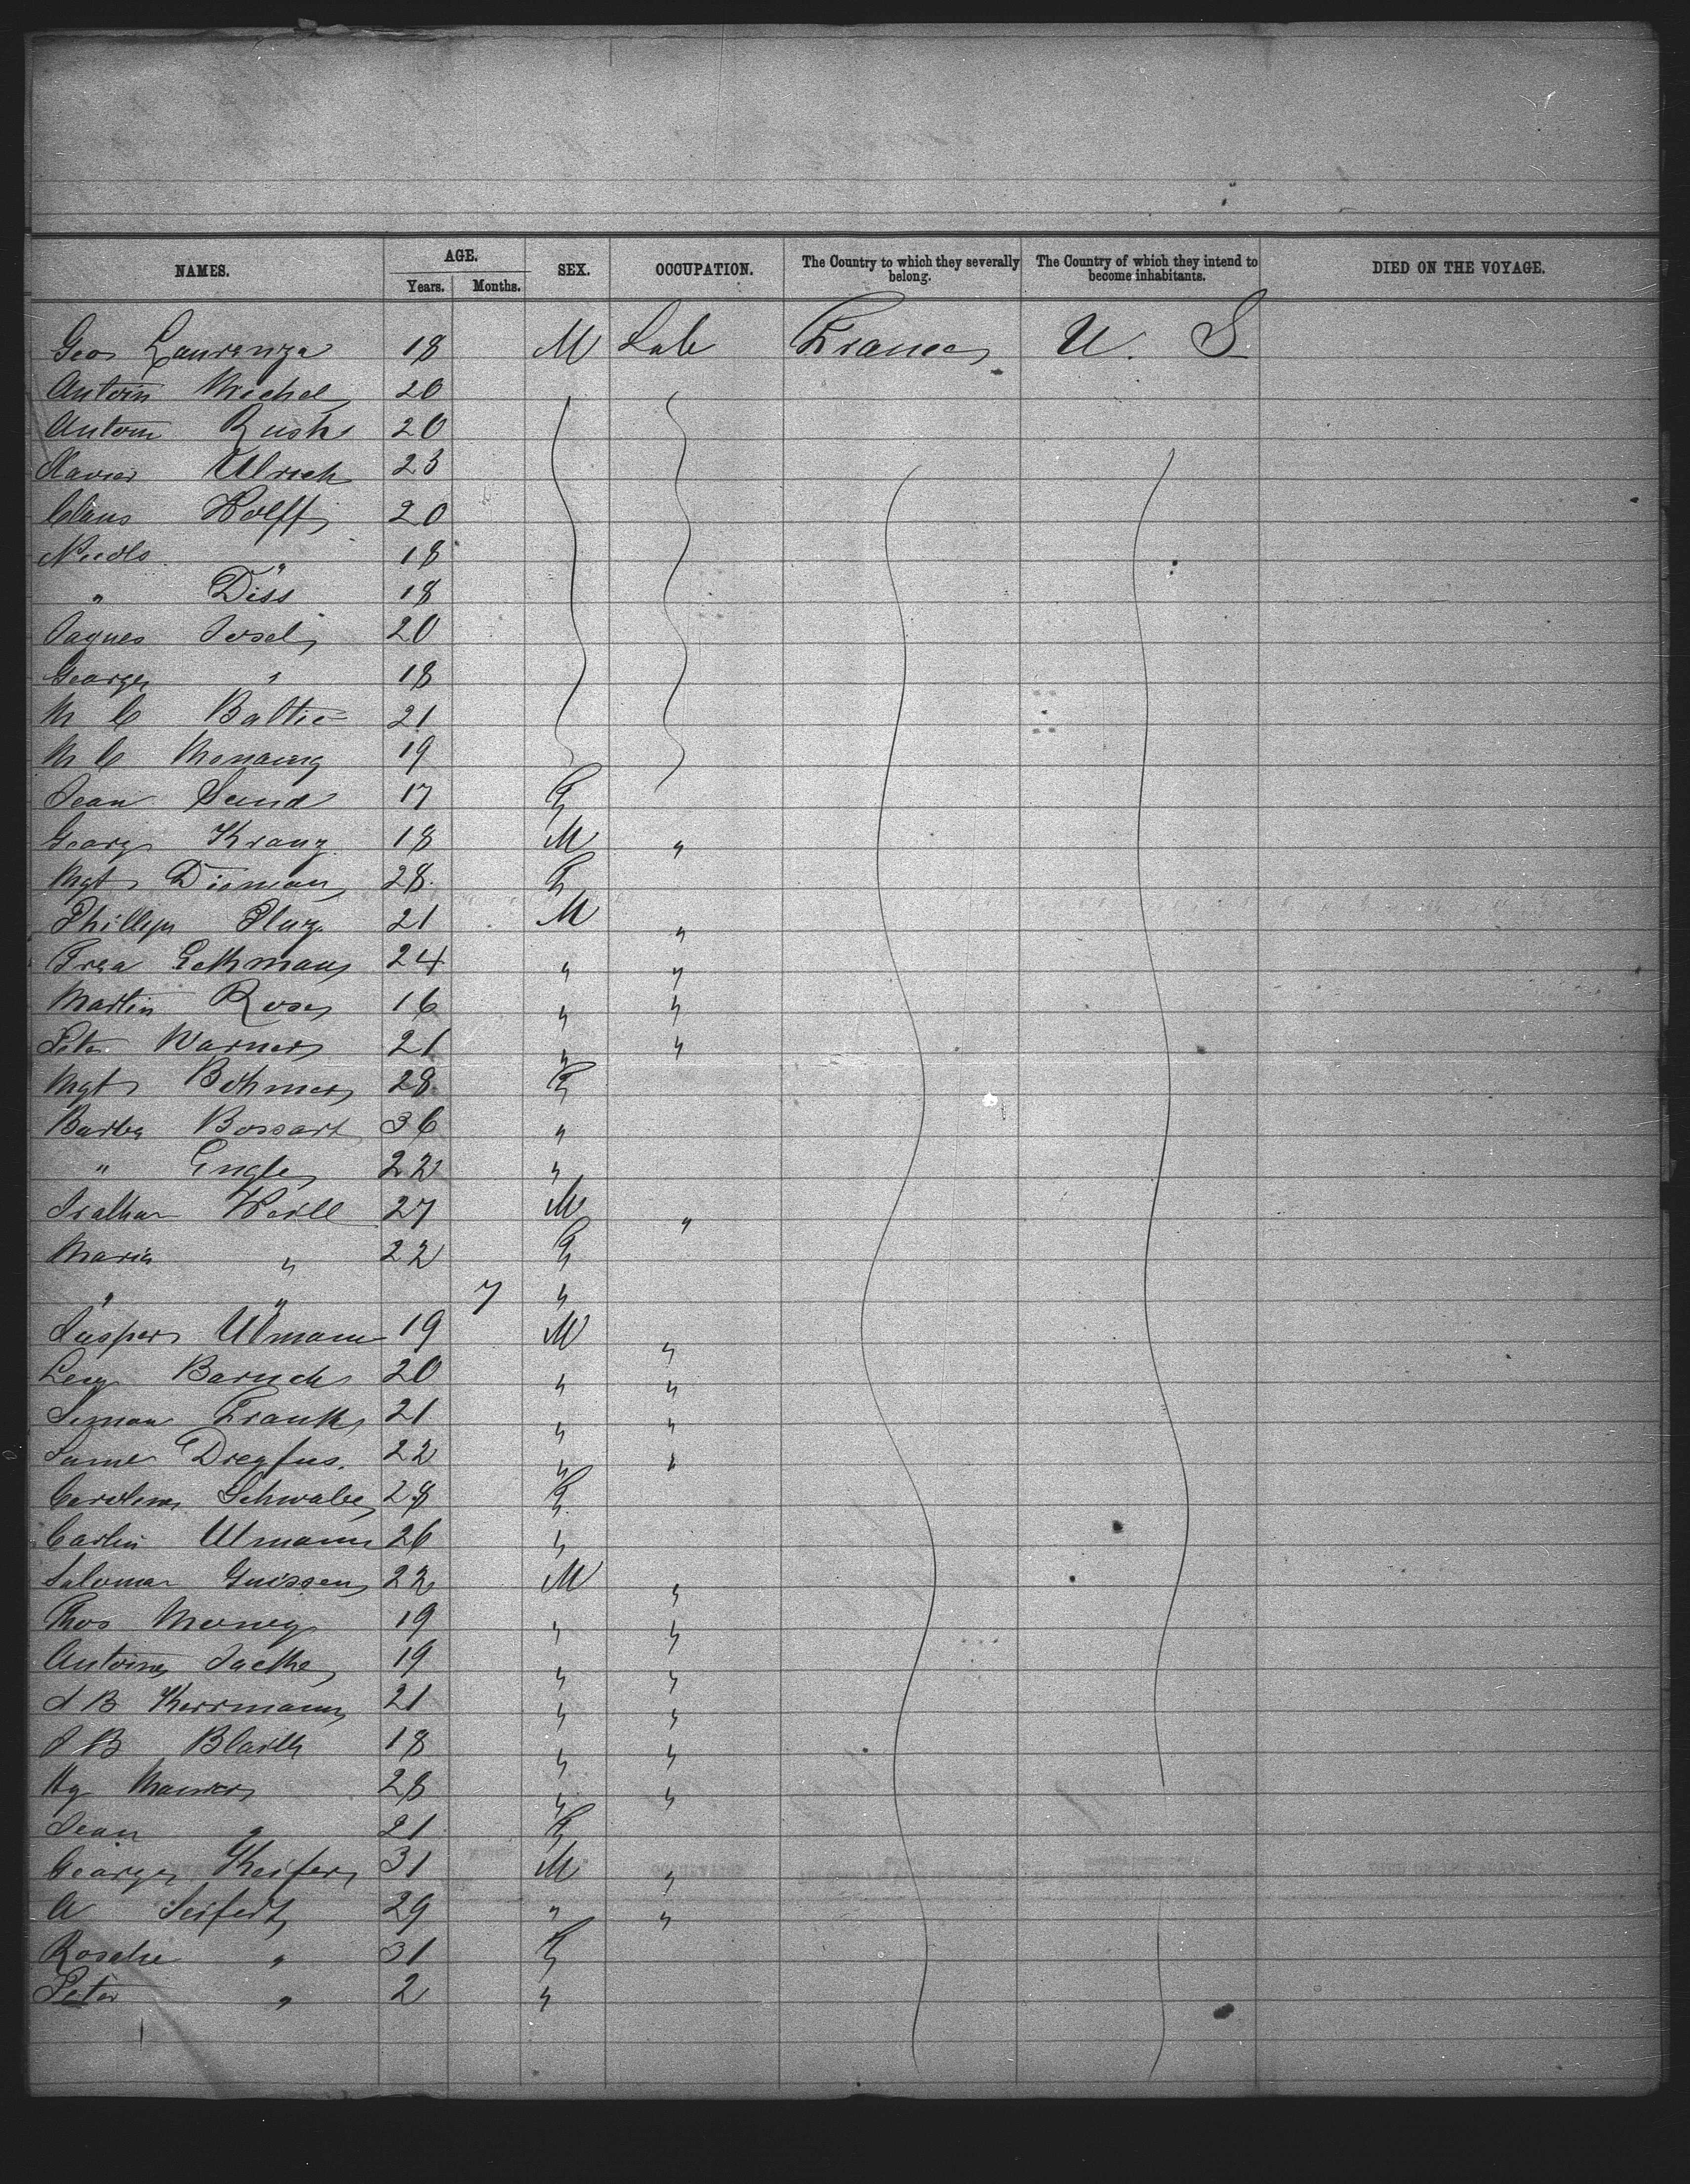 NAMES. AGE. Years. Months. SEX. OCCUPATION. The Country to which they severally belong. The Country of which they intend to become inhabitants. DIED ON THE VOYAGE.
Geo 18 M Lab France U. S
Antoin Michel 20
Antoin Rush 20
Xavier Ulrich 23
Claus Wolff 20
18
" Diss 18
Jaques Josel 20
George " 18
M C Baltie 21
M C 19
Jean 17 F
George Kranz 18 M "
Mgt Dieman 28 F
Phillip 21 M "
24 " "
Martin Rose 16 " "
Peter Warner 21 " "
Mgt Bohmer 28 F
Barba Bossart 36 "
" Engle 22 "
Weill 27 M "
Maria " 22 F
" " 7 "
Ulmann 19 M "
Levy Baruch 20 " "
Simon Frank 21 " "
Dreyfus 22 " "
Caroline Schwabe 28 F
Ulmann 26 "
Saloman 22 M "
Thos 19 " "
Antoine 19 " "
J B Herrmann 21 " "
J B 18 " "
Hy Maurer 28 " "
Jean " 21 F
George Keifer 31 M "
A Seifert 29 " "
Rosalie " 31 F
Peter " 2 "